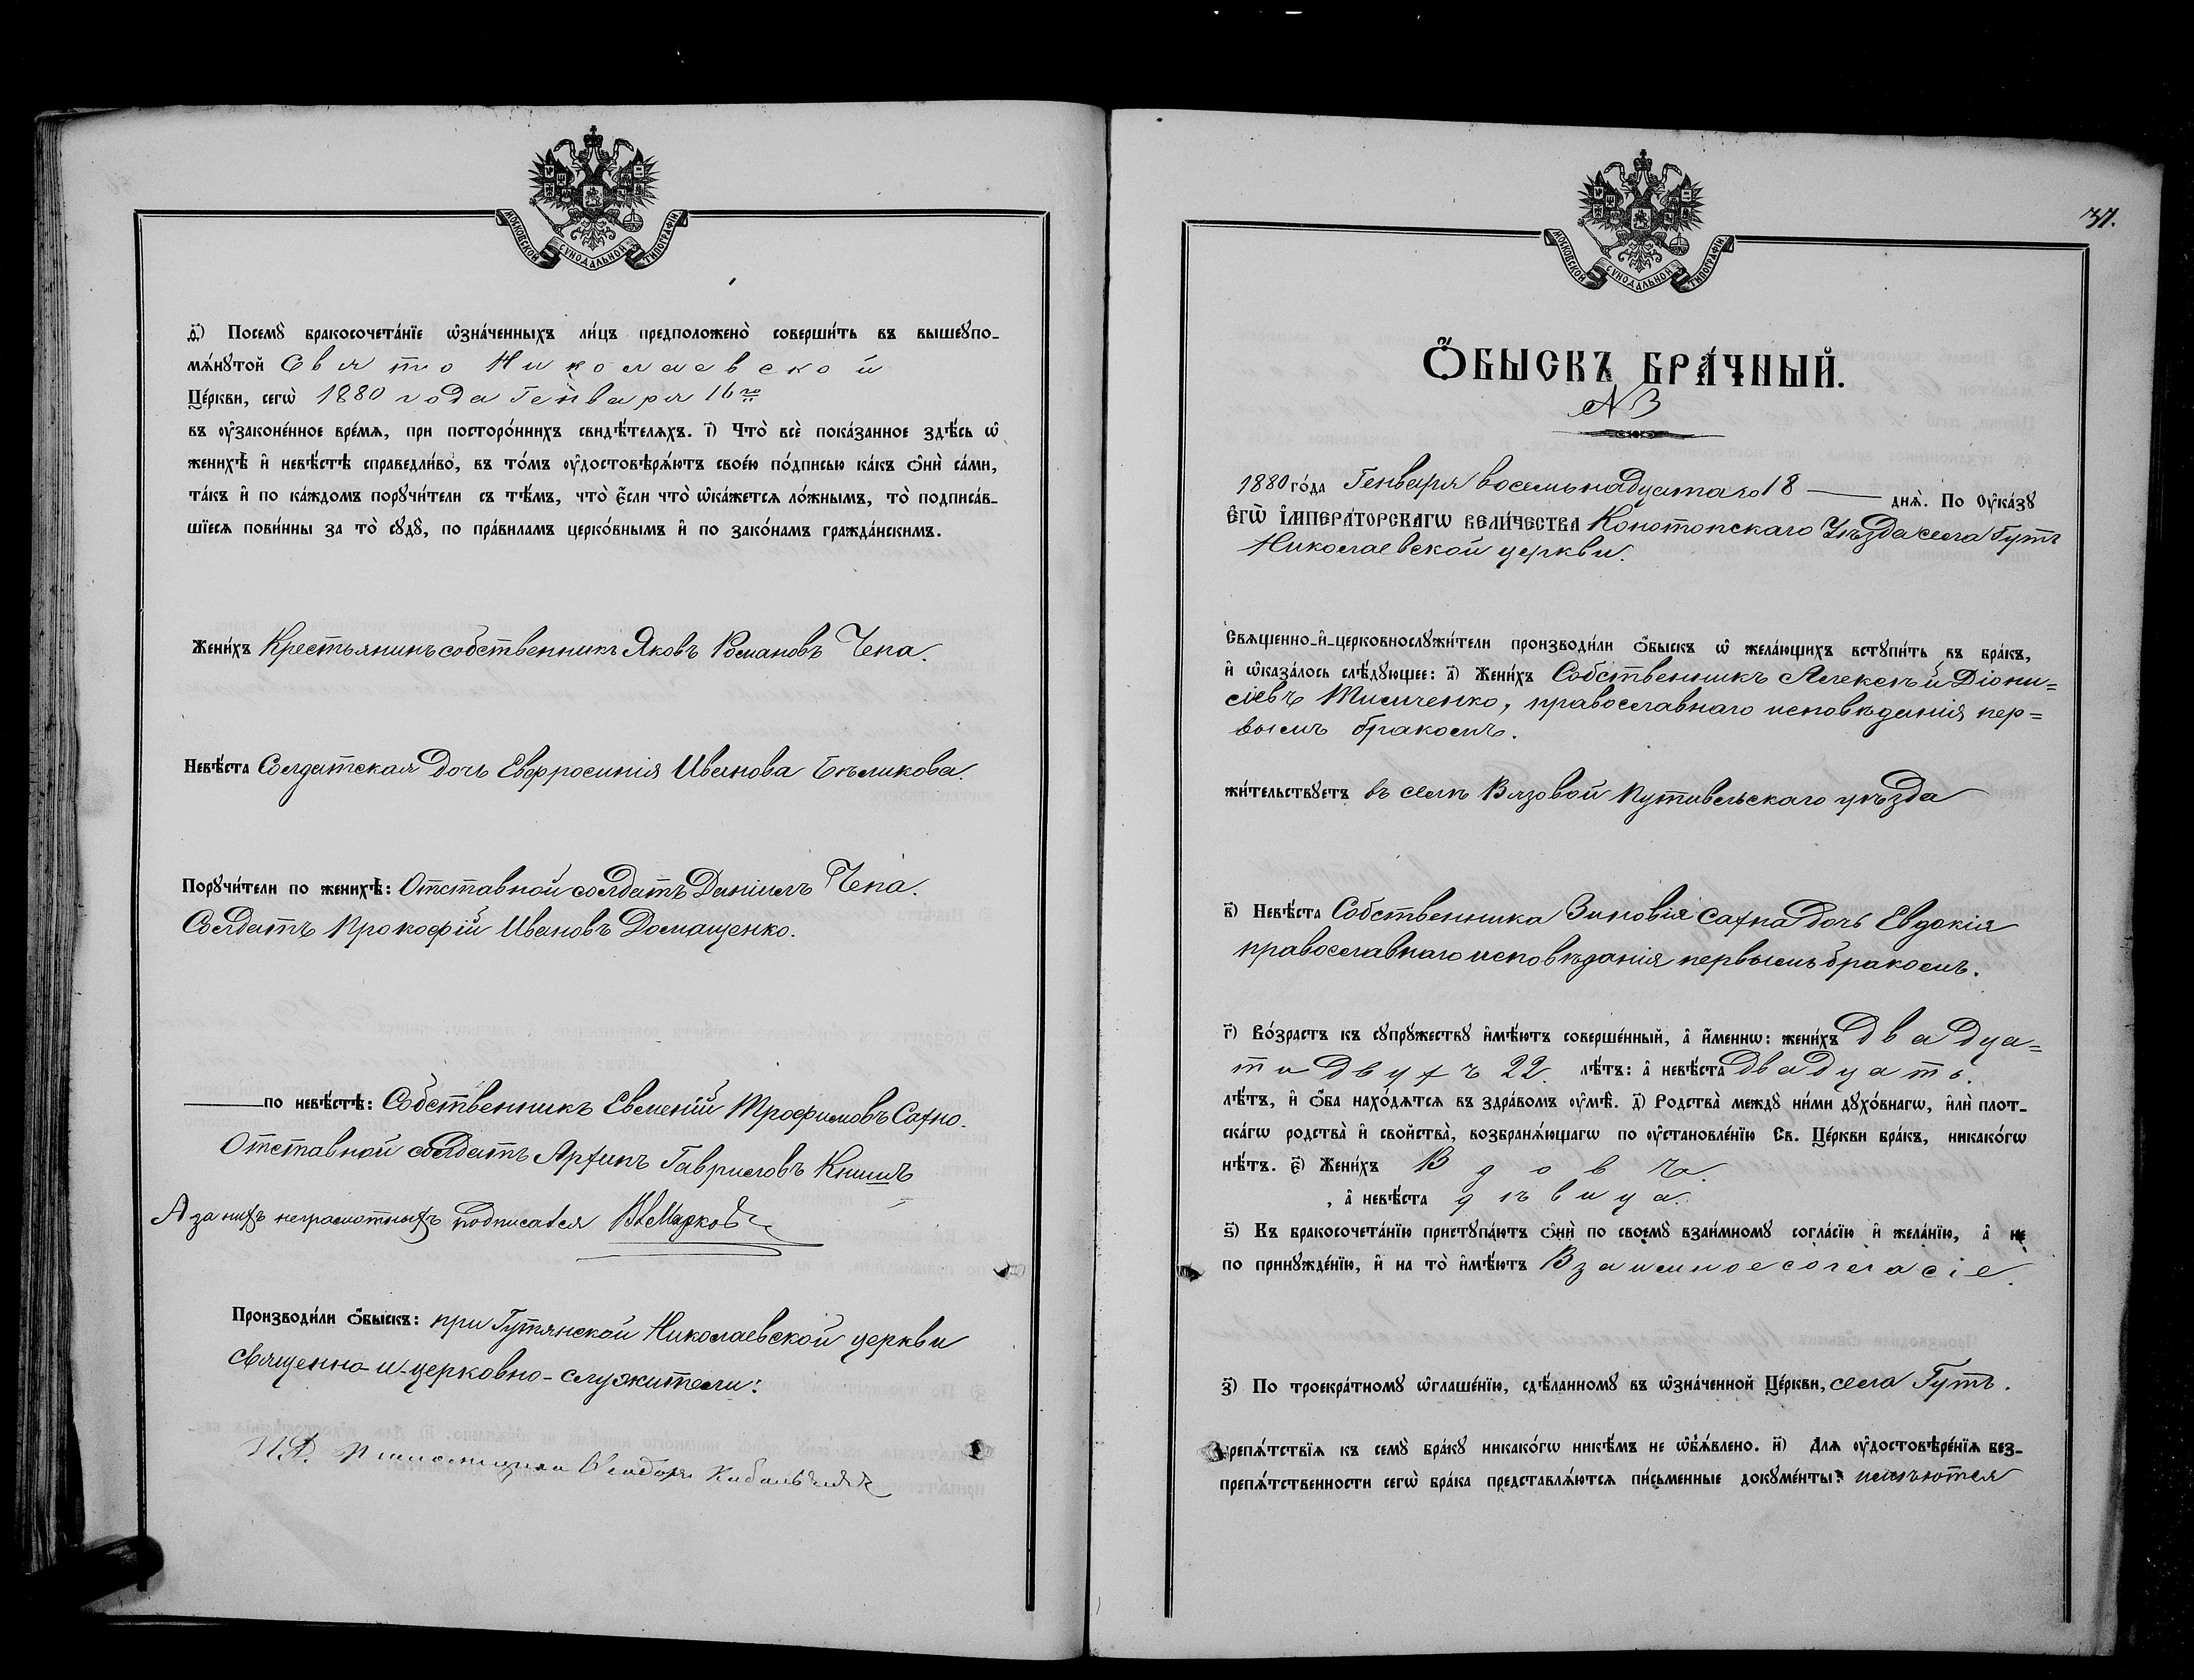 МОСКОВСКОЙ СѴНОДАЛЬНОЙ ТИПОГРАФІИ
д҃) Посемꙋ̀ бракосочета́нїе ѡ҆зна́ченныхъ ли́цъ предположено̀ соверши́ть въ вышеꙋпо-
мѧ́нꙋтой Свято Николаевской
Це́ркви, сегѡ̀ 1880 года Генваря 16го
въ ᲂу҆законе́нное вре́мѧ, при посторо́ннихъ свидѣ́телѧхъ. і҃) Что̀ всѐ пока́занное здѣ́сь ѡ҆
женихѣ̀ и҆ невѣ́стѣ справедли́во, въ то́мъ ᲂу҆достовѣрѧ́ютъ свое́ю по́дписью ка́къ ѻ҆нѝ са́ми,
та́къ и҆ по ка́ждомъ порꙋчи́тели съ тѣ́мъ, что̀ є҆́сли что̀ ѡ҆ка́жетсѧ ло́жнымъ, то̀ подписа́в-
шїесѧ пови́нны за то̀ сꙋдꙋ̀, по пра́виламъ церко́внымъ и҆ по зако́намъ гражда́нскимъ.
Жени́хъ Крестьянинъ собственникъ Яковъ Романовъ Чепа.
Невѣ́ста Солдатская дочь Евфросинія Иванова Бѣликова.
Порꙋчи́тели по женихѣ̀: Отставной солдатъ Даніилъ Чепа.
Солдатъ Прокофій Ивановъ Домащенко.
по невѣ́стѣ: Собственникъ Евменій Трофимовъ Сахно.
Отставной солдатъ Архипъ Гавриловъ Книшъ
А за нихъ неграмотныхъ подписался
Производи́ли ѻ҆́быскъ: при Гутянской Николаевской церкви
священно-и-церковно-служители:
И.Д. Псаломщика Ѳеодоръ
31.
МОСКОВСКОЙ СѴНОДАЛЬНОЙ ТИПОГРАФІИ
Ѻ҆́БЫСКЪ БРА́ЧНЫЙ.
№ 3
1880 го́да Генваря восемьнадцатаго 18 днѧ̀. По Оу҆ка́зꙋ
Є҆ГѠ̀ И҆МПЕРА́ТОРСКАГѠ ВЕЛИ́ЧЕСТВА Конотопскаго Уѣзда села Гутъ
Николаевской церкви.
Свѧщенно-и҆-церковнослꙋжи́тели производи́ли ѻ҆́быскъ ѡ҆ жела́ющихъ встꙋпи́ть въ бра́къ,
и҆ ѡ҆каза́лось слѣ́дꙋющее: а҃) Жени́хъ Собственникъ Алексѣй Діони=
сіевъ Тимченко, православнаго исповѣданія пер=
вымъ бракомъ.
жи́тельствꙋетъ въ селѣ Вязовой Путивльскаго уѣзда
в҃) Невѣ́ста Собственника Зиновія Сахна дочь Евдокія
православнаго исповѣданія первымъ бракомъ.
г҃) Во́зрастъ къ сꙋпрꙋ́жествꙋ и҆мѣ́ютъ соверше́нный, а҆ и҆́менню: жени́хъ Двадца=
ти двухъ 22. лѣ́тъ: а҆ невѣ́ста двадцать.
лѣ́тъ, и҆ ѻ҆́ба нахо́дѧтсѧ въ здра́вомъ ᲂу҆мѣ̀. д҃) Родства̀ междꙋ̀ ни́ми дꙋхо́внагѡ, и҆лѝ плот-
ска́гѡ родства̀ и҆ свойства̀, возбранѧ́ющагѡ по ᲂу҆становле́нїю Св. Це́ркви бра́къ, никако́гѡ
нѣ́тъ. є҃) Жени́хъ Вдовъ.
, а҆ невѣ́ста дѣвица.
ѕ҃) Къ бракосочета́нїю пристꙋпа́ютъ ѻ҆нѝ по своемꙋ̀ взаи́мномꙋ согла́сїю и҆ жела́нїю, а҆ не
по принꙋжде́нїю, и҆ на то̀ и҆мѣ́ютъ Взаимное согласіе.
з҃) По троекра́тномꙋ ѡ҆глаше́нїю, сдѣ́ланномꙋ въ ѡ҆зна́ченной Це́ркви, села Гутъ.
препѧ́тствїѧ къ семꙋ̀ бра́кꙋ никако́гѡ никѣ́мъ не ѡ҆бъѧ́влено. и҃) Длѧ ᲂу҆достовѣре́нїѧ без-
препѧ́тственности сегѡ̀ бра́ка представлѧ́ютсѧ пи́сьменные докꙋме́нты: имѣются